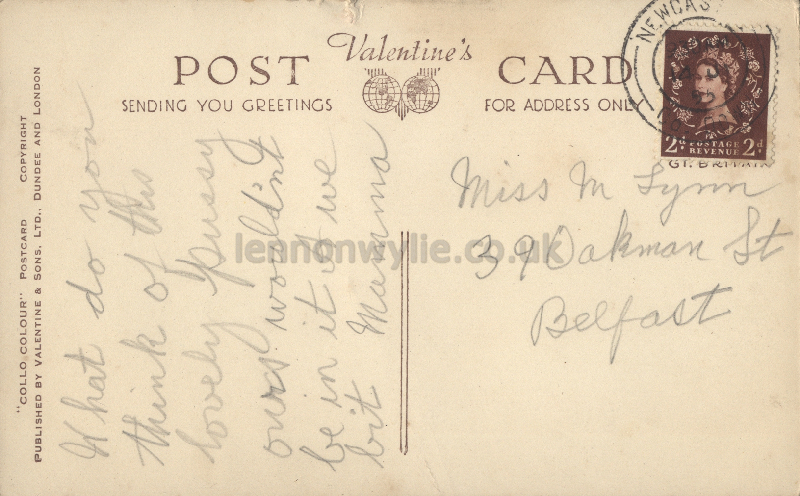 Valentine's
POST CARD
SENDING YOU GREETINGS
FOR ADDRESS ONLY
NEWCAS
2d POSTAGE 2d
REVENUE
GT. BRITAIN
"COLLO COLOUR" POSTCARD COPYRIGHT
PUBLISHED BY VALENTINE & SONS, LTD., DUNDEE AND LONDON
What do you
think of this
lovely pussy
ours wouldn't
be in it if we
bit Mamma
Miss M Lynn
39 Oakman St
Belfast
lennonwylie.co.uk